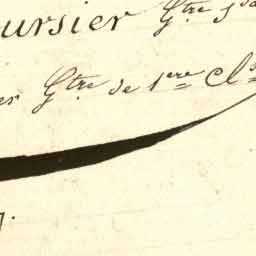 oursier Gtre
er Gtre de 1ere Cls